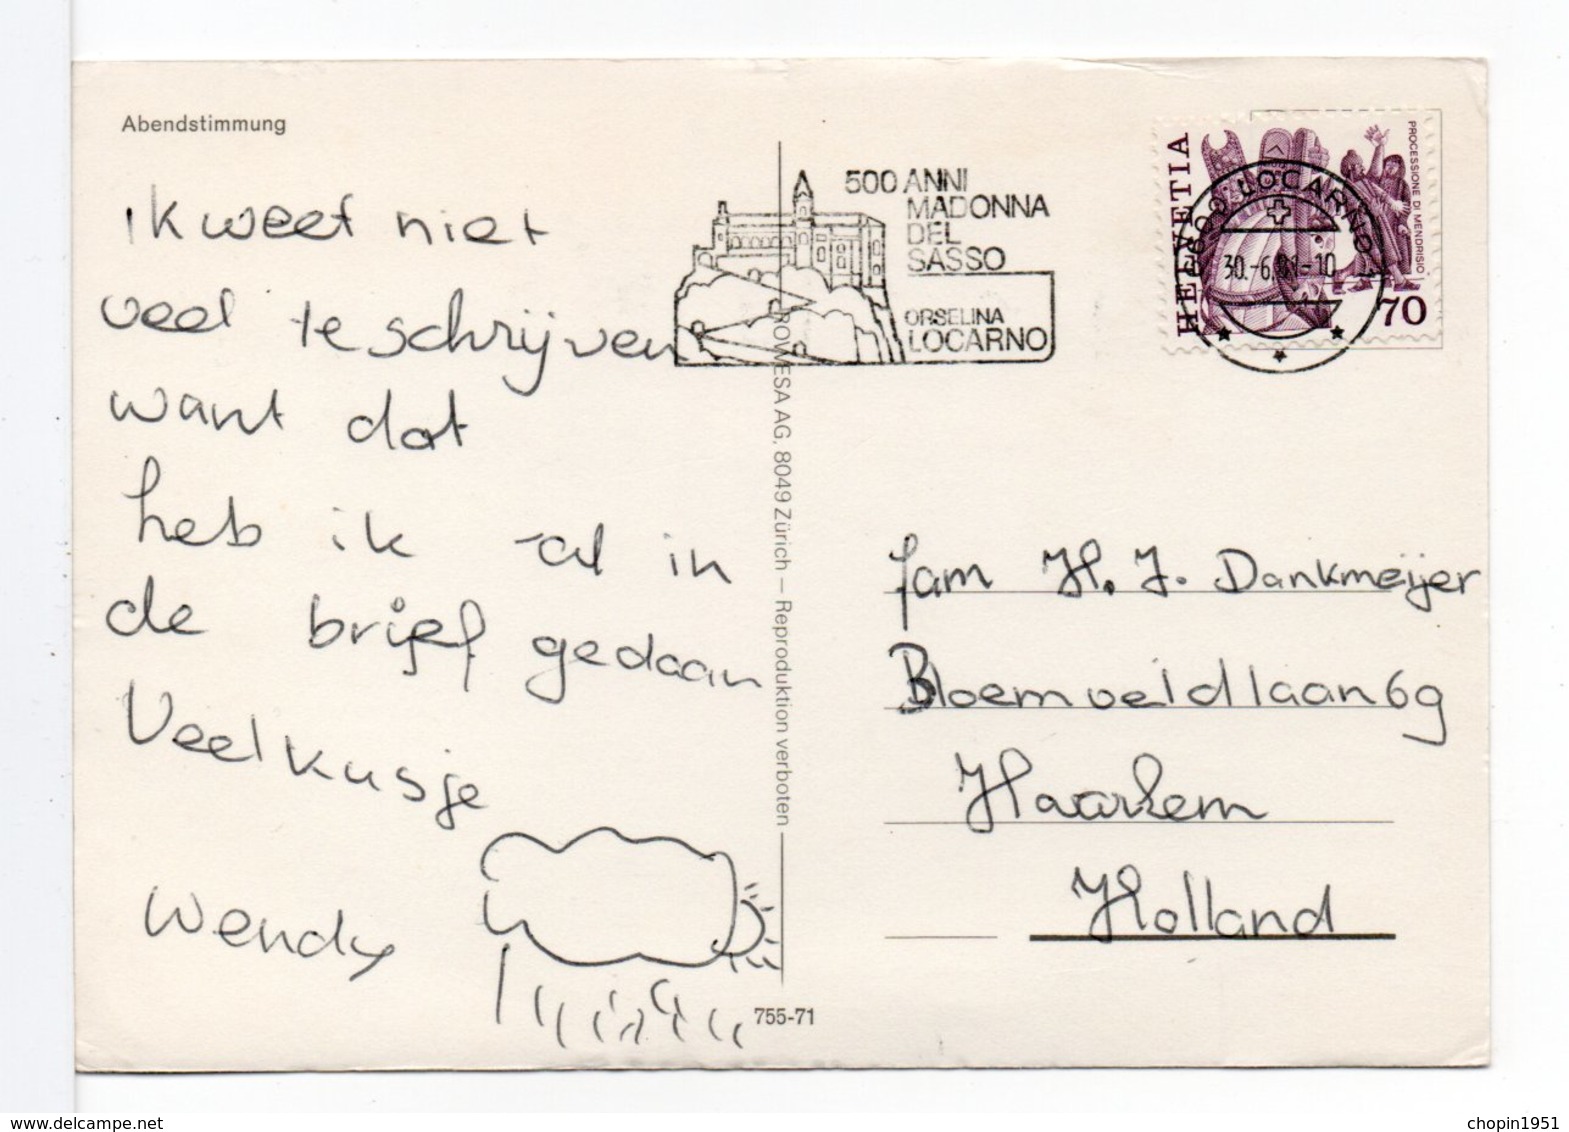 Abendstimmung
Ik weet niet
veel te schrijven
want dat
heb ik al in
de brief gedaan
Veel kusje
Wendy
500 ANNI
MADONNA
DEL
SASSO
ORSELINA
LOCARNO
ROWESA AG, 8049 Zürich – Reproduktion verboten
755-71
HELVETIA
PROCESSIONE DI MENDRISIO
70
6600 LOCARNO 1
fam H. J. Dankmeijer
Bloemveldlaan 69
Haarlem
Holland
chopin1951